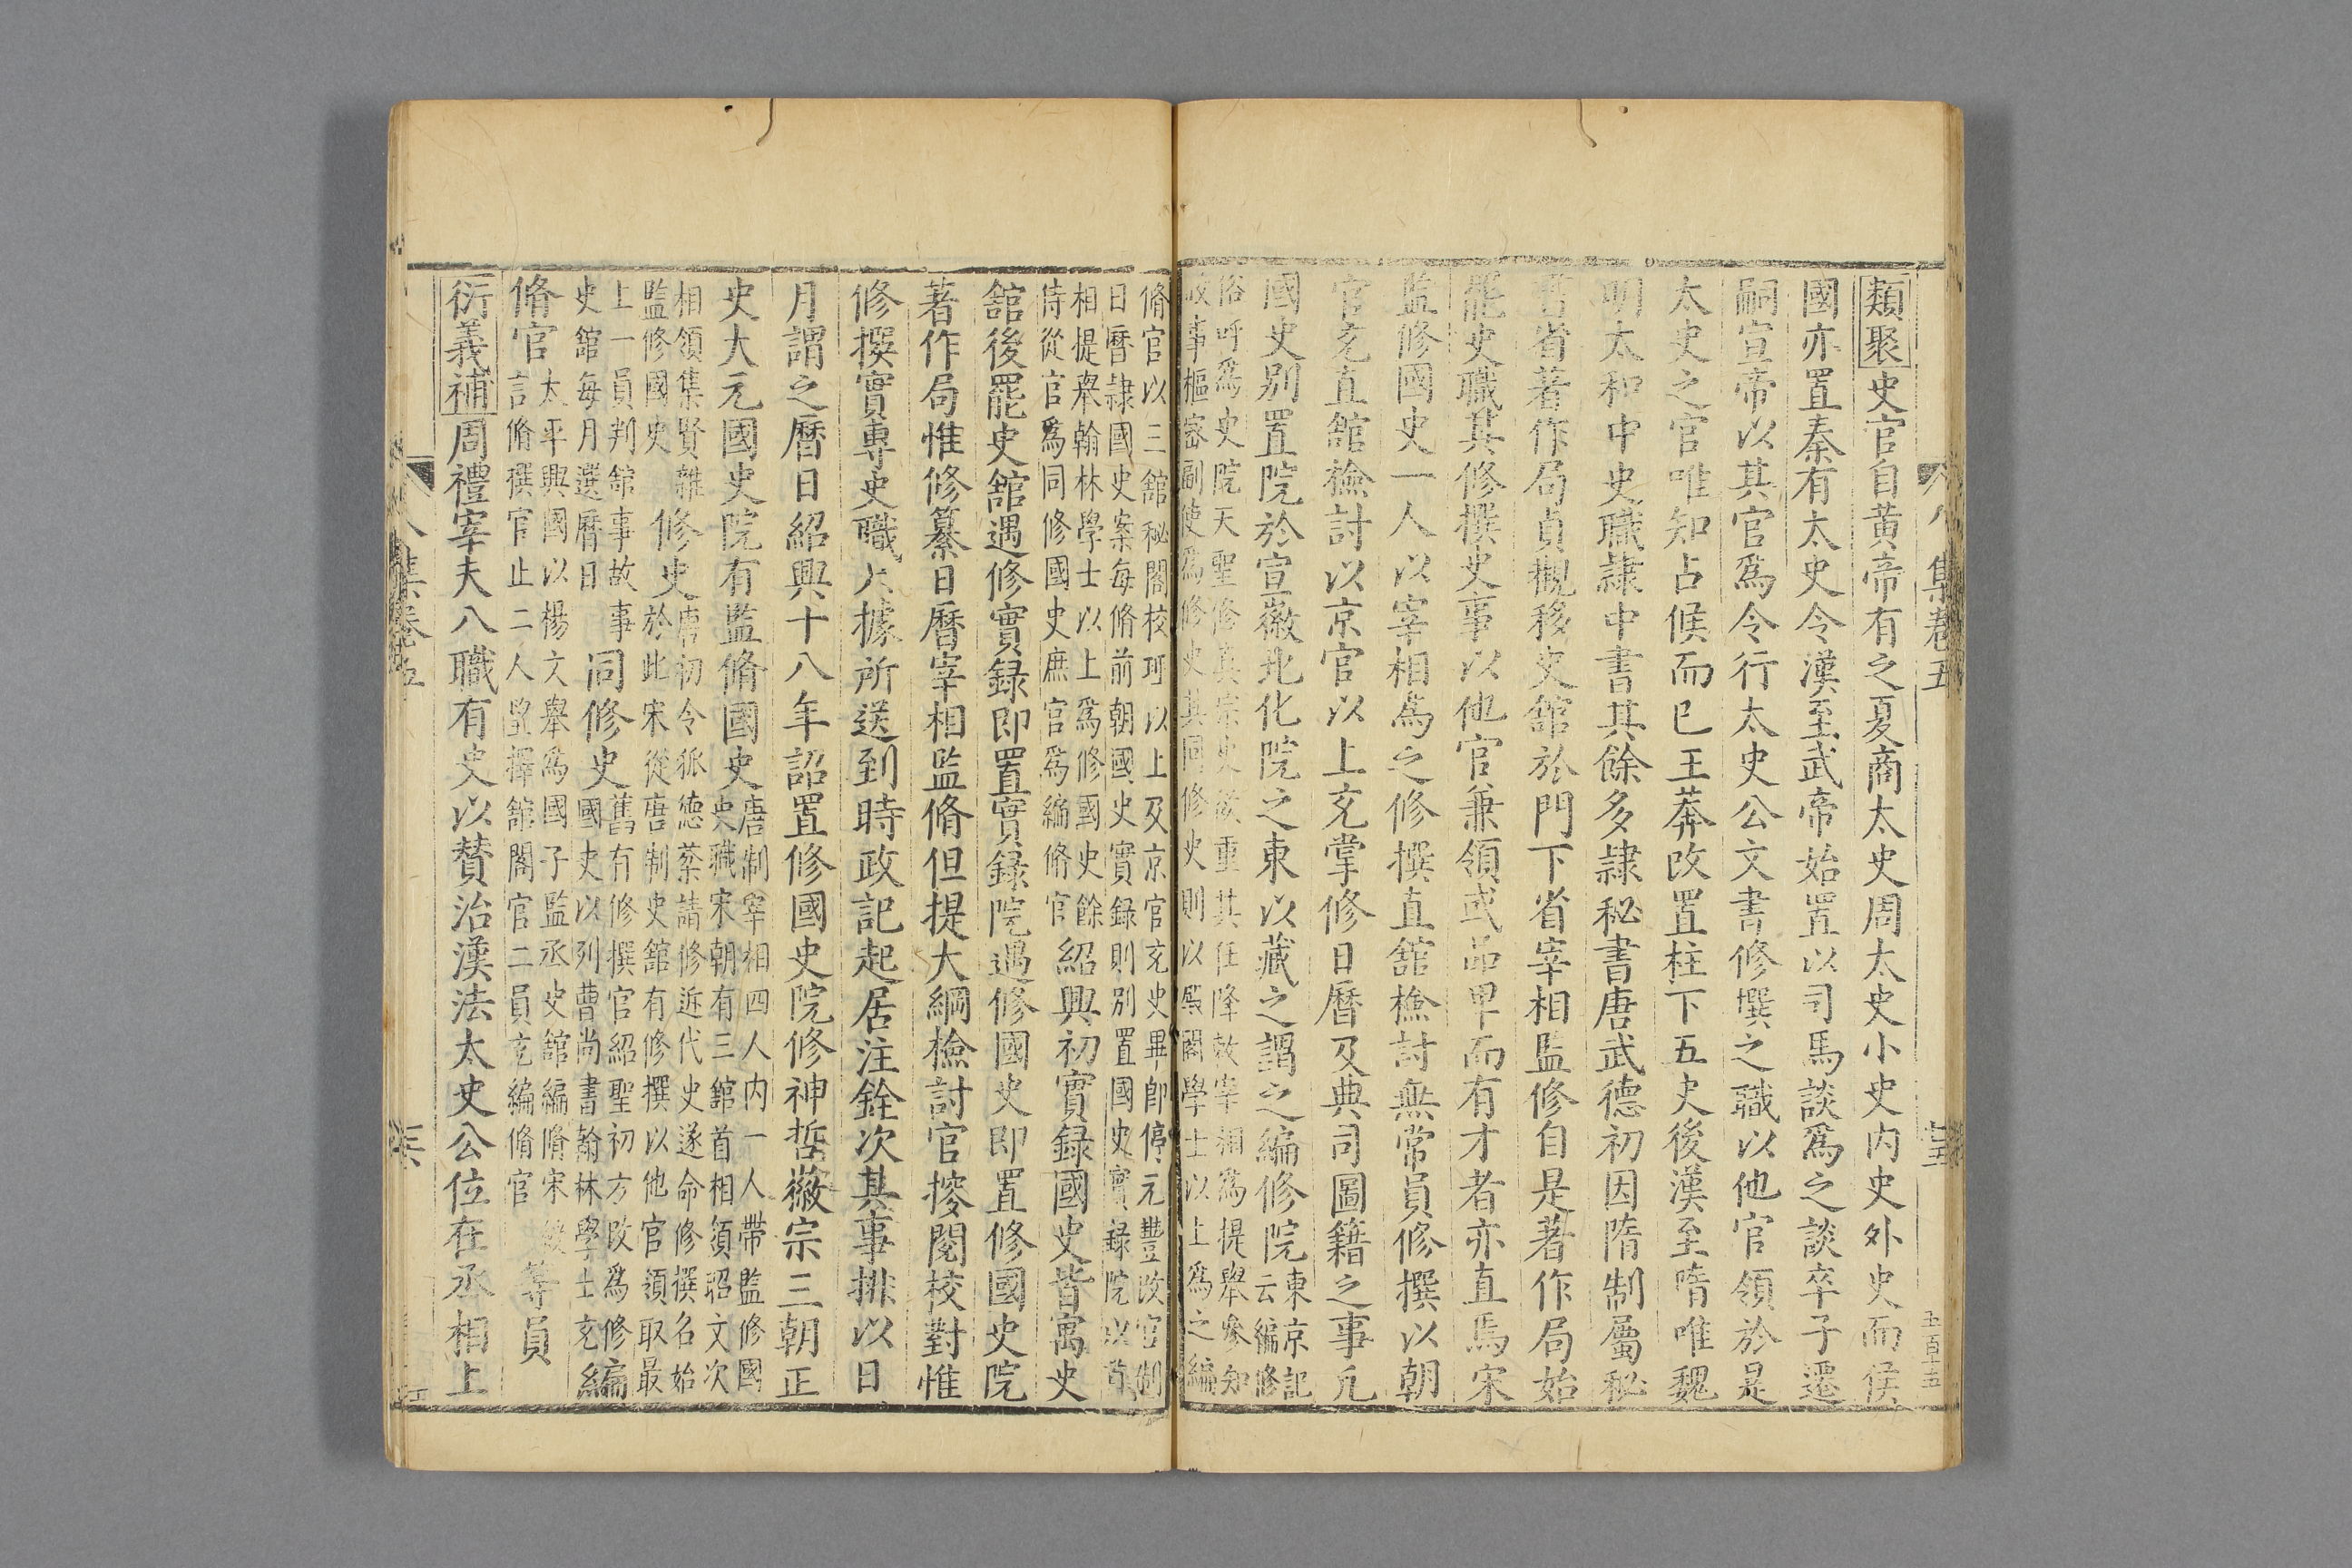 八集卷五
五百十五
類聚史官自黄帝有之夏商太史周太史小史内史外史而侯
國亦置秦有太史令漢至武帝始置以司馬談爲之談卒子遷
嗣宣帝以其官爲令行太史公文書修撰之職以他官領於是
太史之官唯知占候而已王莽改置柱下五史後漢至隋唯魏
明太和中史職隷中書其餘多隷秘書唐武德初因隋制屬秘
書省著作局貞觀移史舘於門下省宰相監修自是著作局始
罷史職其修撰史事以他官兼領或品卑而有才者亦直焉宋
監修國史一人以宰相爲之修撰直舘檢討無常員修撰以朝
官充直舘檢討以京官以上充掌修日曆及典司圖籍之事凢
國史别置院於宣徽北化院之東以藏之謂之編修院東京記
云編修
俗呼爲史院天聖修真宗史欲重其任降敕宰相爲提舉參知
政事樞密副使爲修史其同修史則以舘閣學士以上爲之編
脩官以三舘秘閣校理以上及京官充史畢即停元豐改官制
日曆隷國史案每脩前朝國史實録則别置國史實録院以首
相提舉翰林學士以上爲修國史餘
侍從官爲同修國史庶官爲編脩官紹興初實録國史皆寓史
舘後罷史舘遇修實録即置實録院遇修國史即置修國史院
著作局惟修纂日曆宰相監脩但提大綱檢討官㨮閱校對惟
修撰實專史職大據所送到時政記起居注銓次其事排以日
月謂之曆日紹興十八年詔置修國史院修神哲徽宗三朝正
史大元國史院有監脩國史唐制宰相四人内一人帶監修國
史職宋朝有三舘首相領昭文次
相領集賢雜
監修國史修史唐初令狐德棻請修近代史遂命修撰名始
於此宋從唐制史舘有修撰以他官領取最
上一員判舘事故事
史舘每月選曆日同修史舊有修撰官紹聖初方改爲修
國史以列曹尚書翰林學士充編
脩官太平興國以楊文舉爲國子監丞史舘編脩宋
言脩撰官止二人望擇舘閣官二員充編脩官等員
衍義補周禮宰夫八職有史以賛治漢法太史公位在丞相上
八集卷五